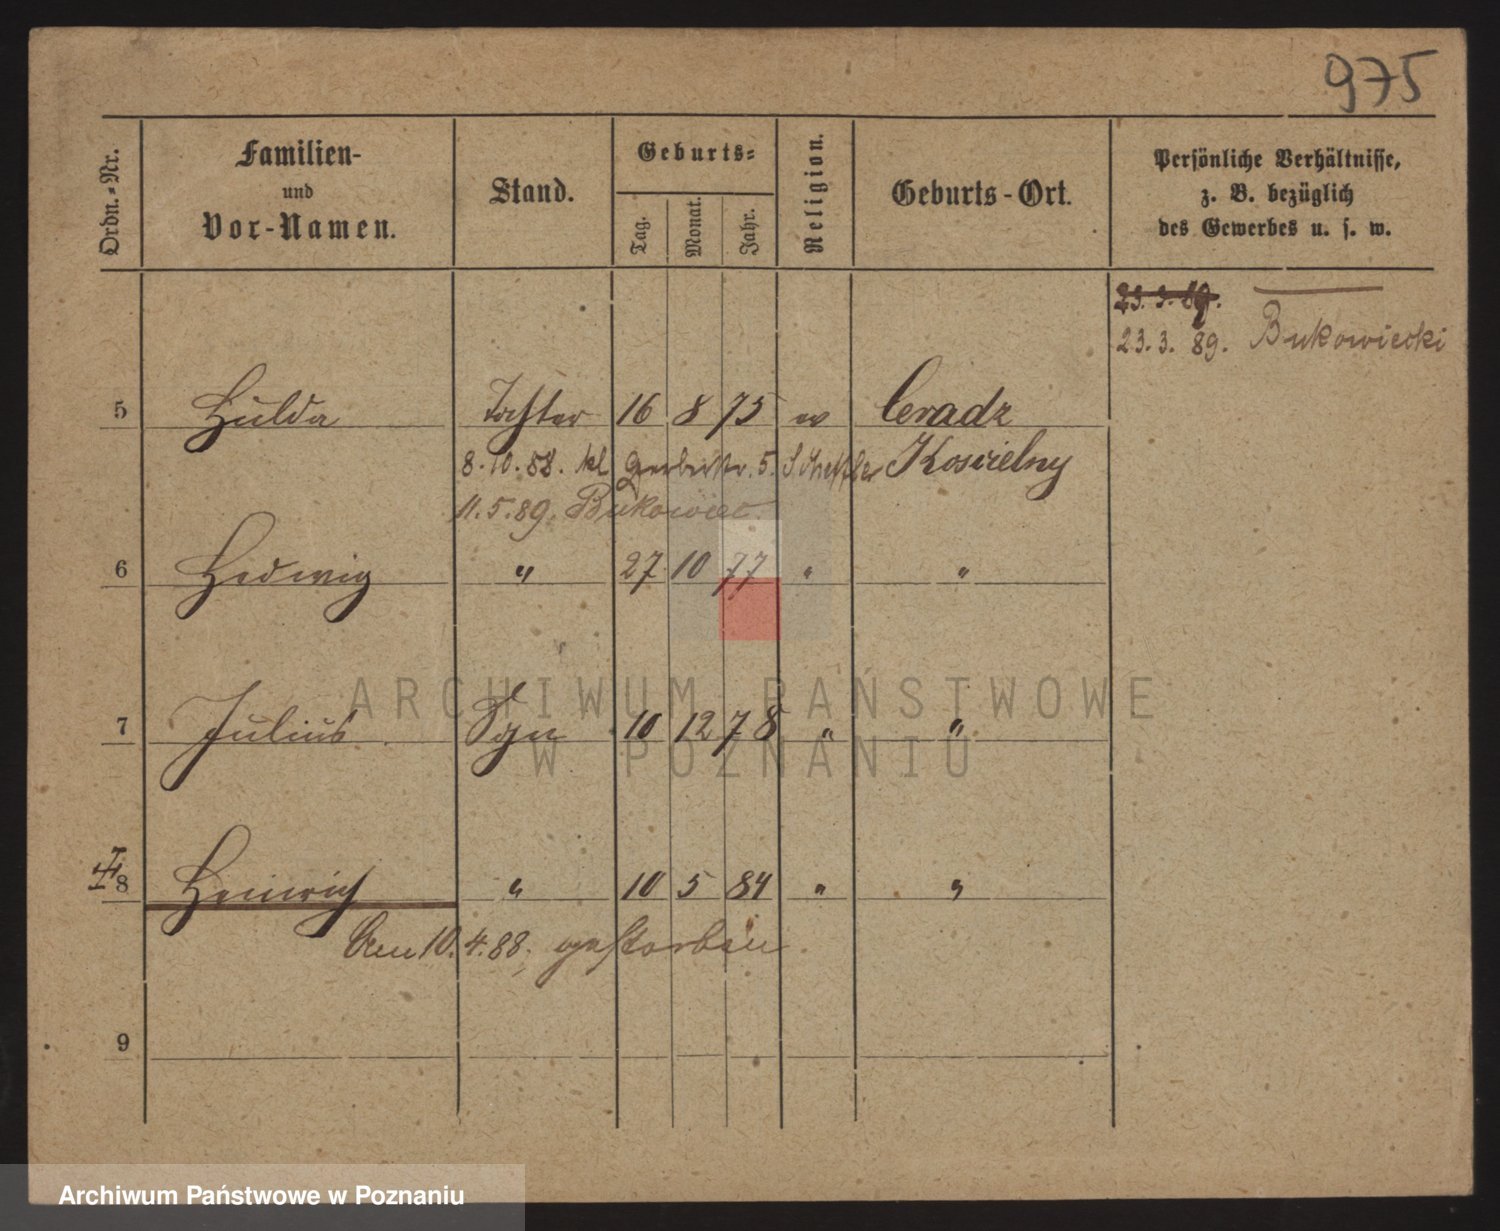 975
Ordn.-Nr.
Familien-
und
Vor-Namen.
Stand.
Geburts-
Tag.
Monat.
Jahr.
Religion.
Geburts-Ort.
Persönliche Verhältnisse,
z. B. bezüglich
des Gewerbes u. s. w.
23. 3. 89.
23. 3. 89. Bukowiecki
5 Hulda Tochter 16 8 75 ev Ceradz
8.10.88. kl Gerberstr. 5. Koscielny
11.5.89. Bukowiec
6 Hedwig " 27 10 77 " "
7 Julius Sohn 10 12 78 " "
8 Heinrich " 10 5 84 " "
Am 10.4.88. gestorben.
9
ARCHIWUM PAŃSTWOWE
W POZNANIU
Archiwum Państwowe w Poznaniu